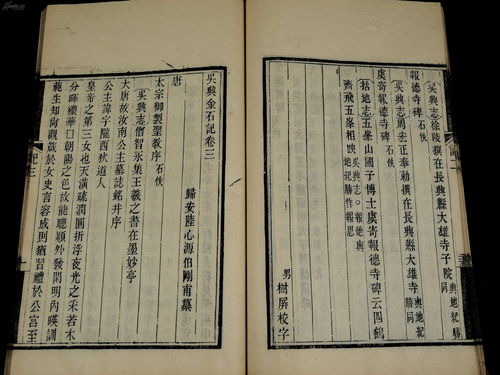 吳興志徐陵撰在長興縣大雄寺子院輿地紀勝同
報德寺碑石佚
吳興志周宏正奉勅撰在長興縣大雄寺輿地紀勝同
虞寄報德寺碑石佚
括地志五峯山國子博士虞寄報德寺碑云四鶴
齊飛五峯相映
男樹屏校字
吳興金石記卷三
歸安陸心源伯剛甫纂
唐
太宗御製聖教序石佚
吳興志僧智永集王羲之書在墨妙亭
大唐故汝南公主墓誌銘并序
公主諱字隴西狄道人
皇帝之第三女也天潢疏潤圓折浮夜光之采若木
分暉穠華照朝陽之色故能聰穎外發閑明內暎訓
範生知尚觀箴於女史言容成則猶習禮於公宮至